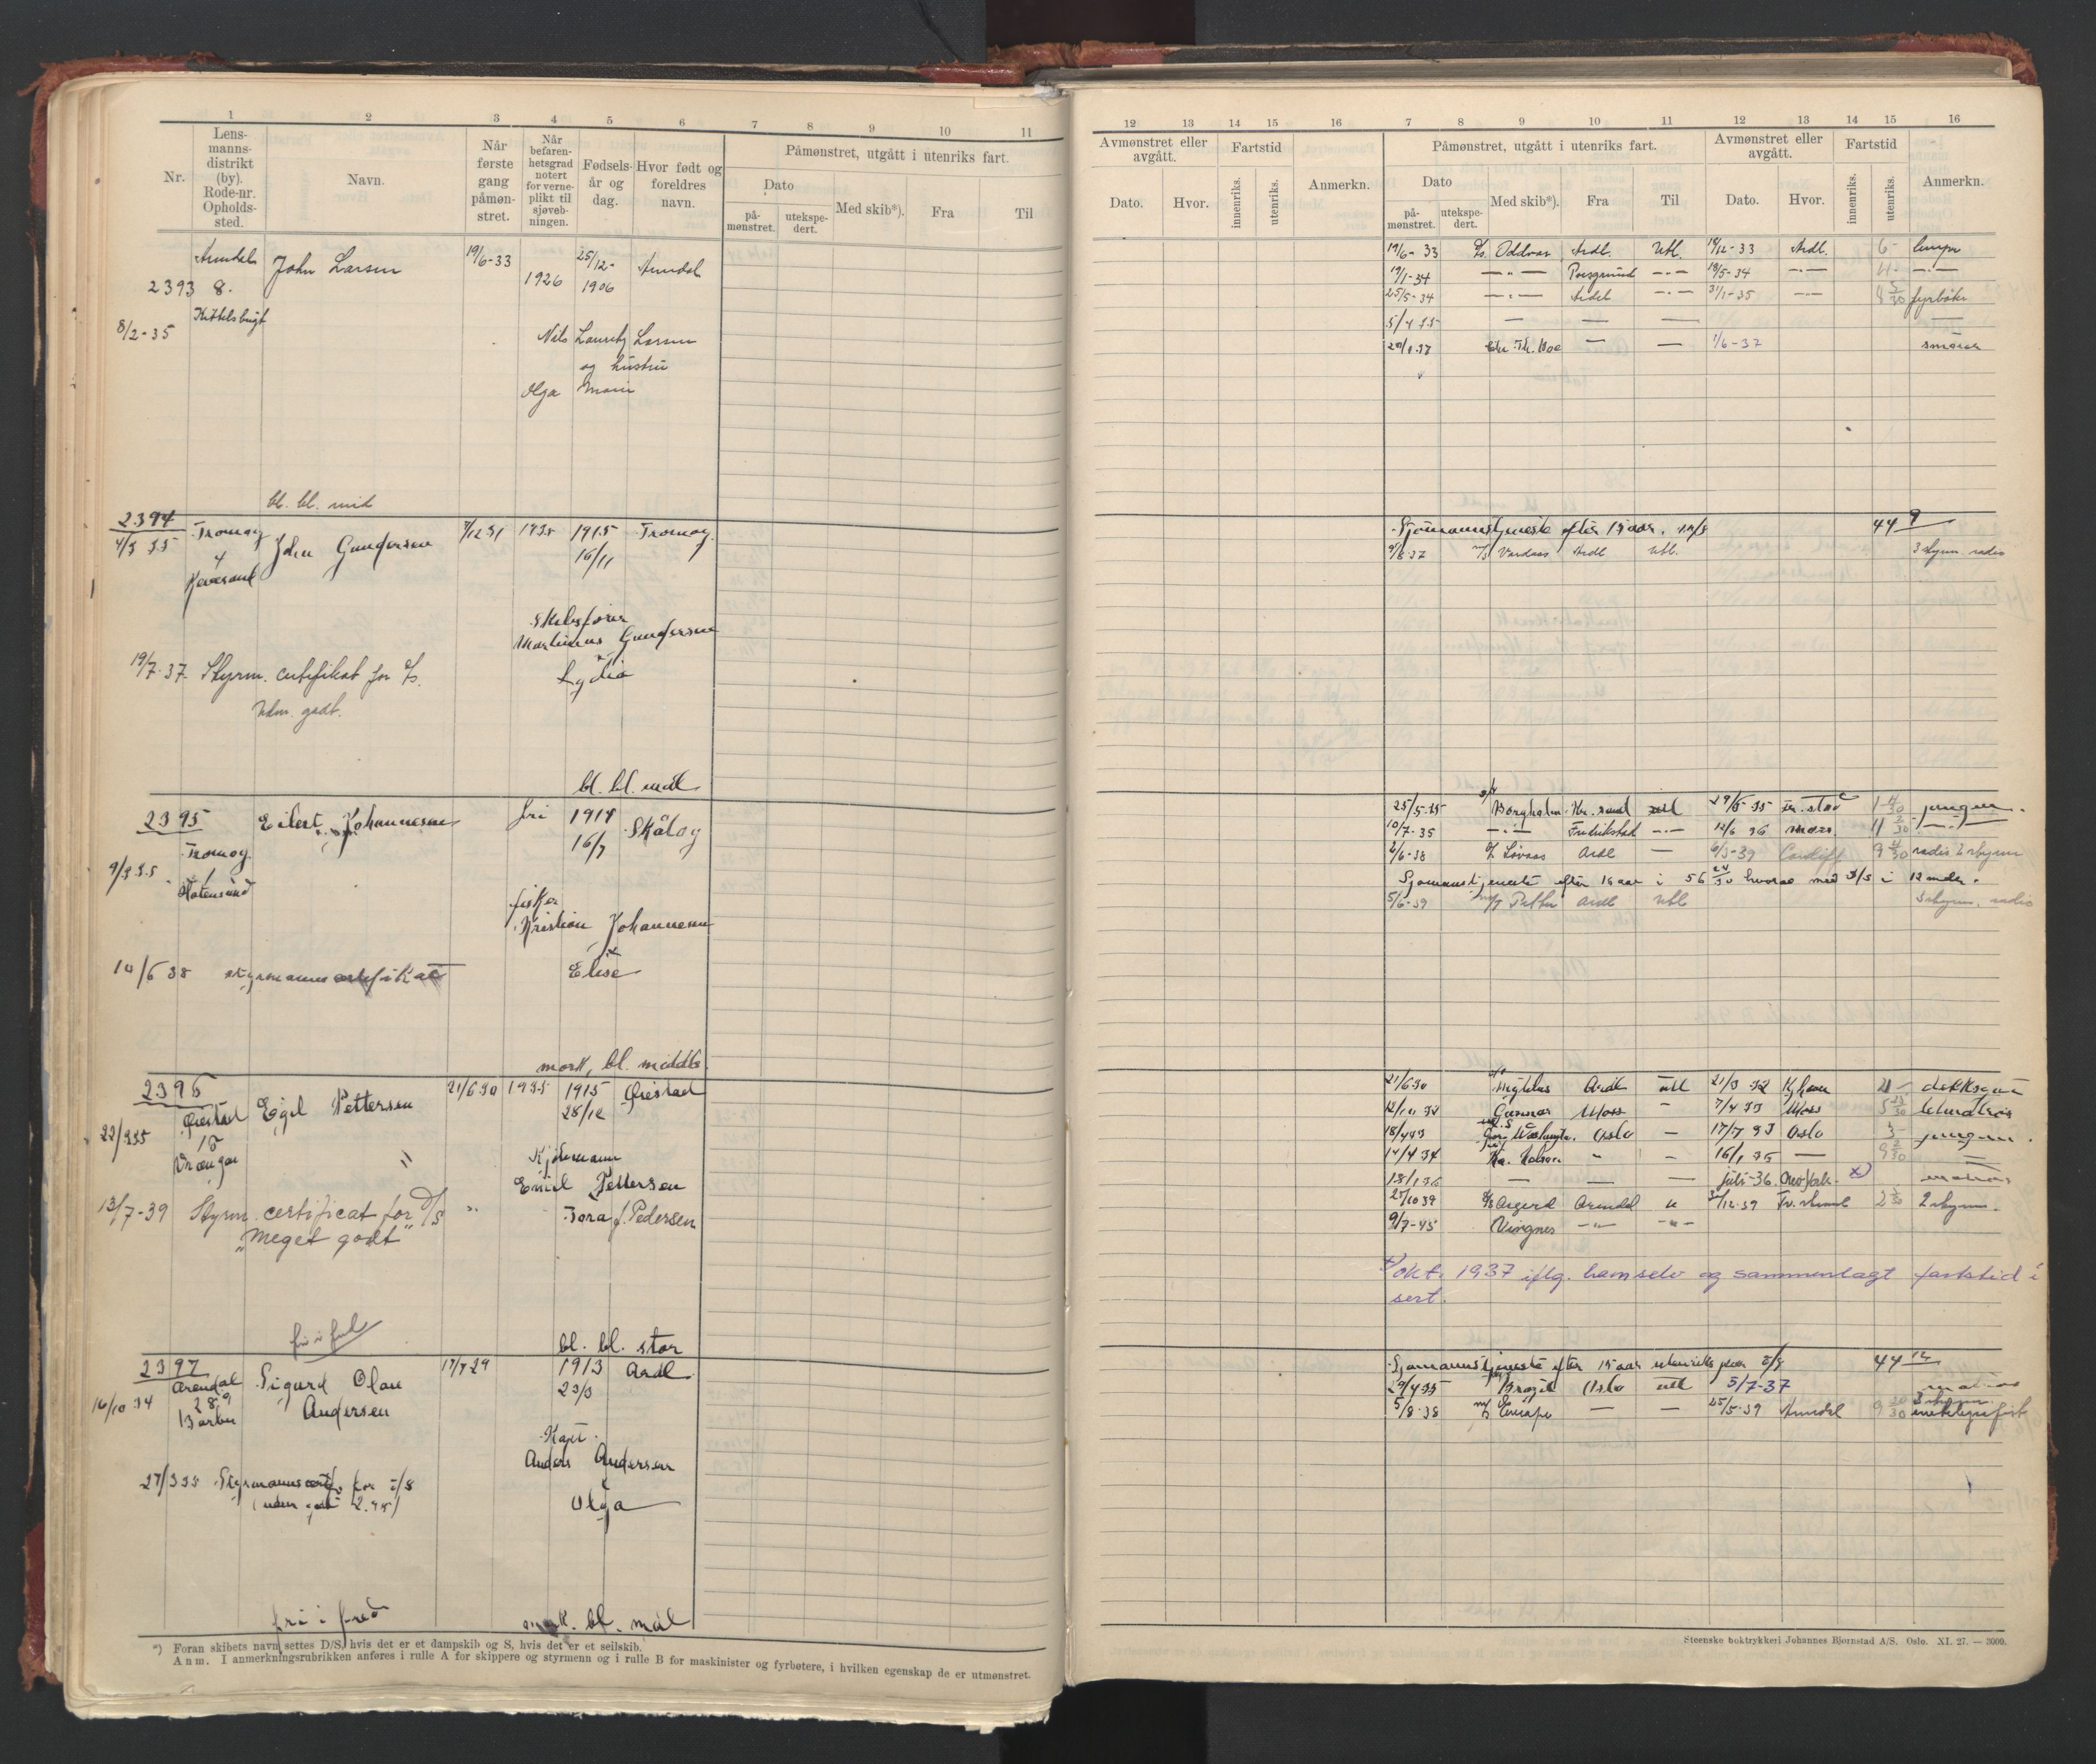 1 2 3 4 5 6 7 8 9 10 11
Nr. Lens-manns-distrikt (by). Rode-nr. Opholds-sted. Navn. Når første gang påmøn-stret. Når befaren-hetsgrad notert for verne-plikt til sjøvæb-ningen. Fødsels-år og dag. Hvor født og foreldres navn. Påmønstret, utgått i utenriks fart.
Dato Med skib*). Fra Til
på-mønstret. utekspe-dert.
Arendal John Larsen 19/6-33 1926 25/12-1906 Arendal
2393 8.
8/2-35 Kittelsbugt
Nils Lauritz Larsen
og hustru
Olga Marie
bl. bl. mid
2394 Tromøy John Gundersen 1935 1915 Tromøy
4/3 35 4 16/11
Skibsfører
Martinius Gundersen
Lydia
19/7-37. Styrm. certifikat for D/S.
Udm. godt.
bl. bl. mdl
2395 Eilert Johannesen fri 1914 Skåtøy
Tromøy 16/7
9/3 35
fisker
Kristian Johannesen
Elise
10/6 38 styrmannscertifikat
mørk, bl. middels
2396 Egil Pettersen 21/6 30 1935 1915 Øiestad
Øiestad 28/12
22/3 35 15
Vrængen
Emiel Pettersen
Tora f. Pedersen
13/7-39 Styrm. certificat for D/S
"Meget godt"
bl. bl. stor
2397 Sigurd Olau 17/7 29 1913 Ardl
Arendal Andersen 23/3
16/10 34 Barbu
Kapt.
Anders Andersen
Olga
27/3 35 Styrmannscertf. for D/S
fri i fred mørk. bl. mdl
*) Foran skibets navn settes D/S, hvis det er et dampskib og S, hvis det er et seilskib.
Anm. I anmerkningsrubrikken anføres i rulle A for skippere og styrmenn og i rulle B for maskinister og fyrbøtere, i hvilken egenskap de er utmønstret.
12 13 14 15 16 7 8 9 10 11 12 13 14 15 16
Avmønstret eller avgått. Fartstid Anmerkn. Påmønstret, utgått i utenriks fart. Avmønstret eller avgått. Fartstid Anmerkn.
Dato. Hvor. innenriks. utenriks. Dato Med skib*). Fra Til Dato. Hvor. innenriks. utenriks.
på-mønstret. utekspe-dert.
19/6-33 D/S. Oddvar Ardl. Utl. 19/12-33 Ardl. 6- lemper
19/1-34 —"— Porsgrund —"— 19/5-34 —"— 4- —"—
25/5-34 —"— Ardl —"— 31/1-35 —"— 8 5/30 fyrbøter
5/4 35 — — — —
20/1-37 Chr. Th. Boe — — 1/6-37 smører
Sjømannstjeneste efter 15 aar. 44 9
9/8 37 M/S Vardaas Ardl Utl. 3 styrm. radio
25/5-35 Borgholm Kr.sand utl 29/5-35 1 4/30 jungm.
10/7-35 —"— Fredrikstad —"— 12/6 36 11 2/30 —"—
2/6-38 Ardl — 6/3-39 Cardiff 9 4/30 radio 2 styrm
Sjømannstjeneste efter 15 aar i 56 24/30 hvorav med D/S i 12 mdr.
5/6-39 Ardl Utl 3 styrm. radio
21/6 30 Ardl utl 21/3 32 Kjhavn 21 - dekksgut
12/10 32 Gunnar Moss " 7/4 33 Moss 5 25/30 letmatros
18/4 33 Geo. Washingtn. Oslo — 17/7 33 Oslo 3- jungm.
14/4 34 " — 16/1 35 — 9 2/30 —
18/1 36 — — — juli-36. x) matros
25/10 39 D/S Asgerd Arendal " 2 styrm.
9/7-45 Vivgnes —"— —"—
x) okt. 1937 iflg. ham selv og sammenlagt fartstid i
sert.
Sjømannstjeneste efter 15 aar utenriks paa D/S 44 12
29/4 35 Brazil Oslo utl 5/7-37 matros
5/8-38 M/S Europa — — 25/5-39 Arendal 9 20/30 3 styrm.
Steenske boktrykkeri Johannes Bjørnstad A/S. Oslo. XI. 27. — 3000.